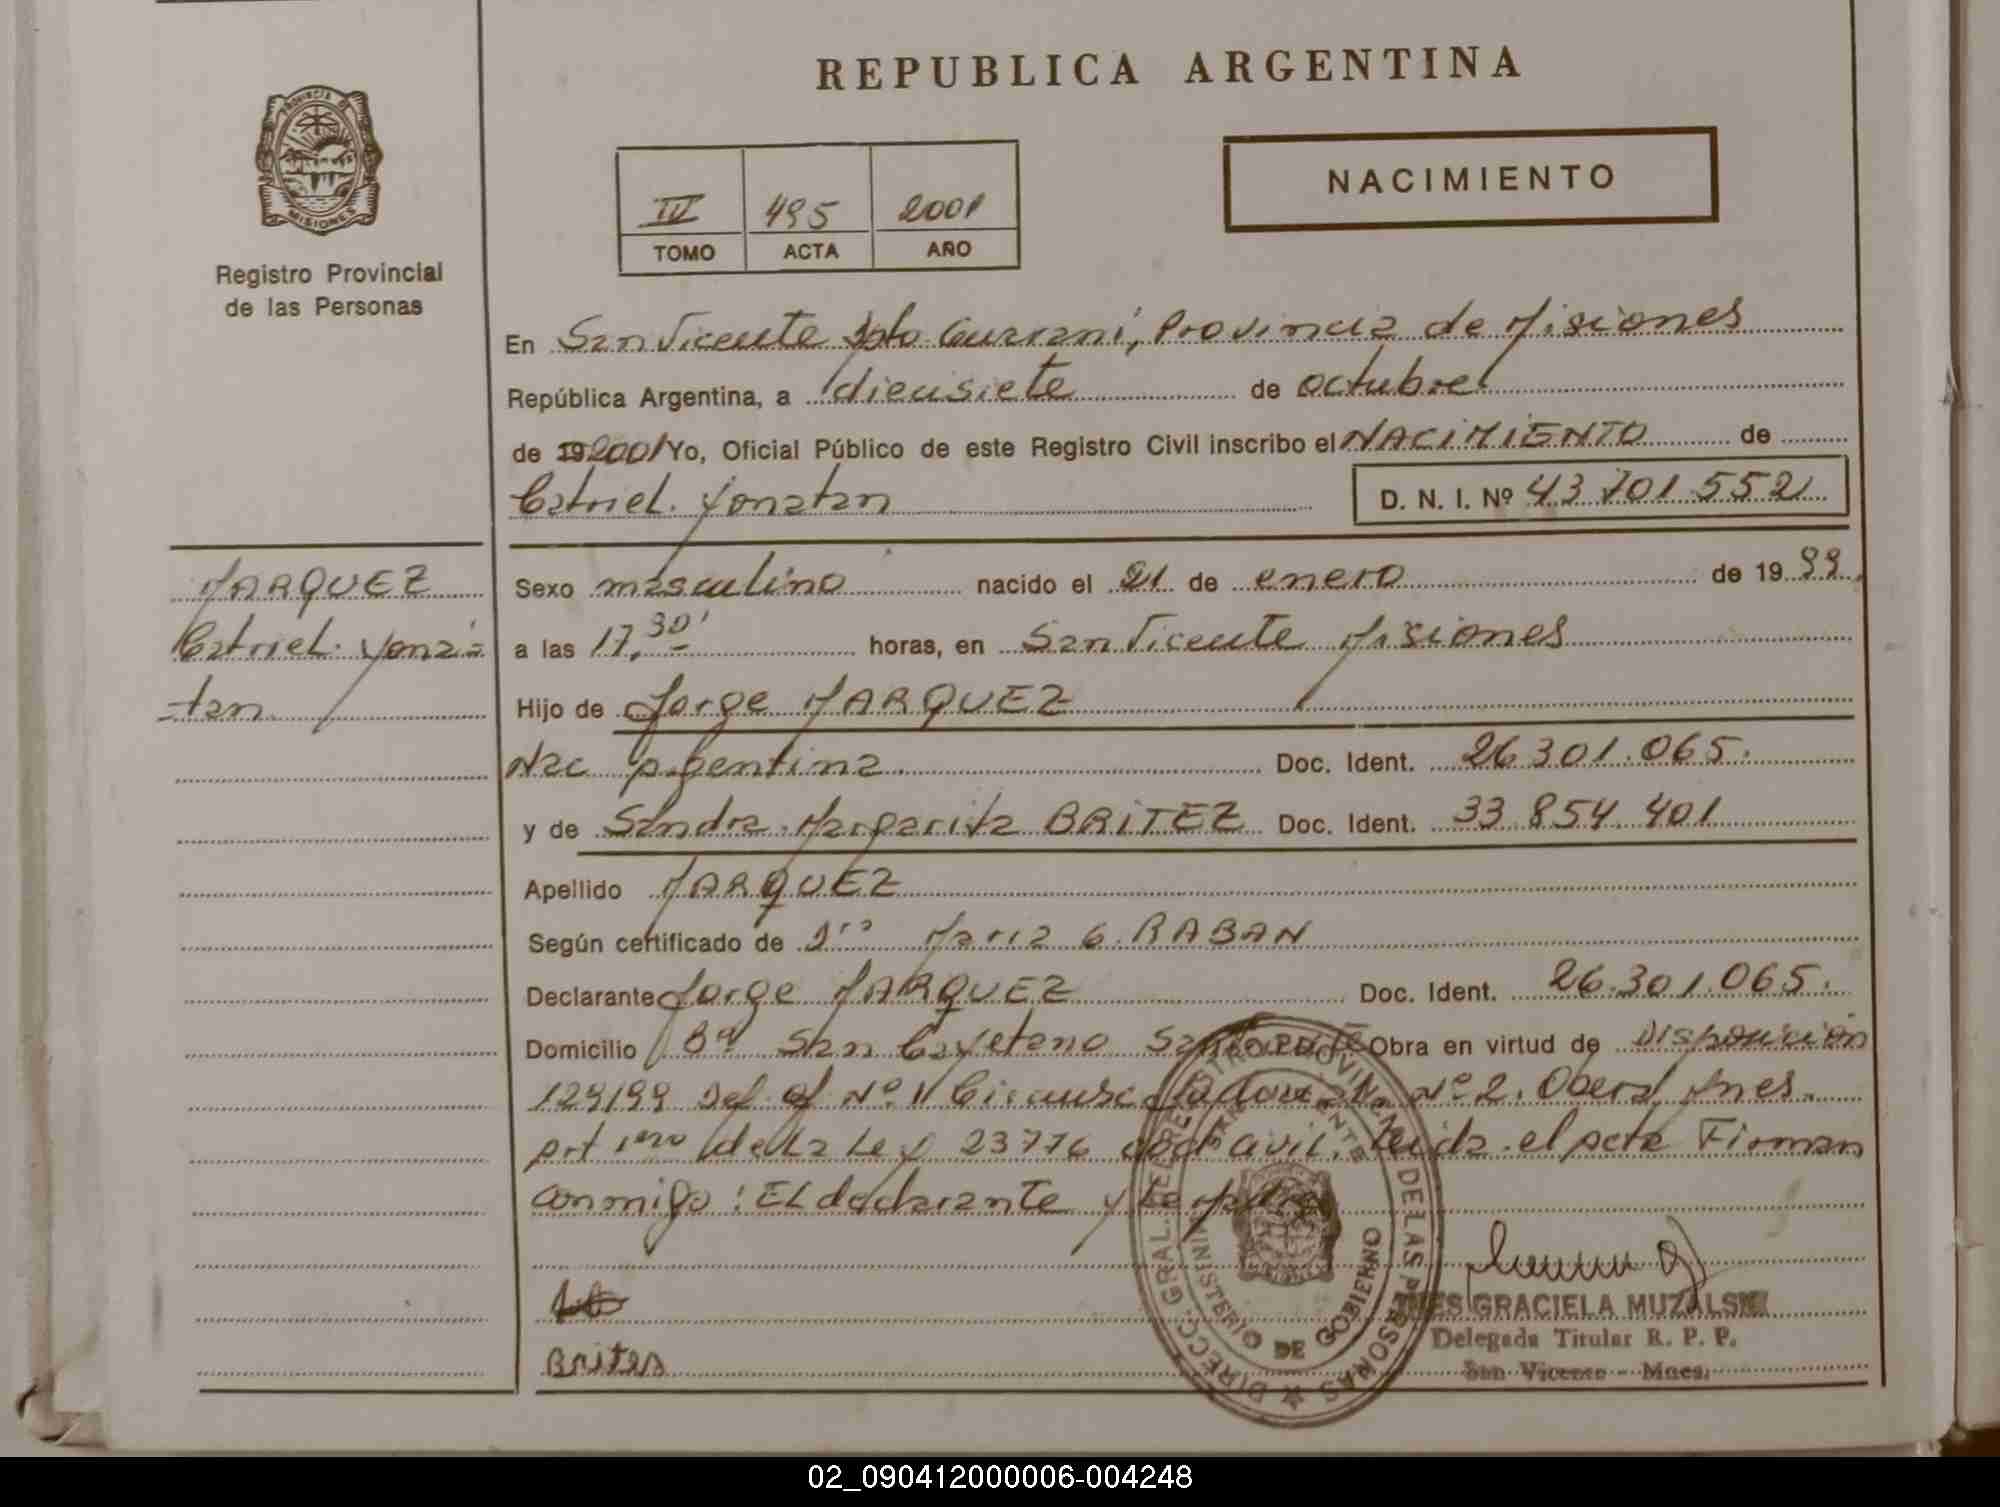 REPUBLICA ARGENTINA
PROVINCIA DE
MISIONES
Registro Provincial
de las Personas
NACIMIENTO
IV 495 2001
TOMO ACTA AÑO
En San Vicente Dpto Guarani, Provincia de Misiones
República Argentina, a diecisiete de octubre
de 19 2001 Yo, Oficial Público de este Registro Civil inscribo el NACIMIENTO de
Catriel Yonatan D. N. I. Nº 43 701 552
MARQUEZ
Catriel Yona=
=tan
Sexo masculino nacido el 21 de enero de 19 99
a las 17,30' horas, en San Vicente Misiones
Hijo de Jorge MARQUEZ
Nac Argentina Doc. Ident. 26 301.065.
y de Sandra Margarita BRITEZ Doc. Ident. 33 854 401
Apellido MARQUEZ
Según certificado de Dra Maria G. RABAN
Declarante Jorge MARQUEZ Doc. Ident. 26.301.065.
Domicilio Bº San Cayetano Obra en virtud de Disposición
129/99 Def. of Nº 11 Nº 2. Obera Mnes.
Art 1ero de la Ley 23776 Leida el acta Firman
conmigo: El declarante y la Madre
Brites
DIRECC. GRAL. DEL REGISTRO PROVINCIAL DE LAS PERSONAS
MINISTERIO DE GOBIERNO
INES GRACIELA MUZALSKI
Delegada Titular R. P. P.
San Vicente - Mnes.
02_090412000006-004248